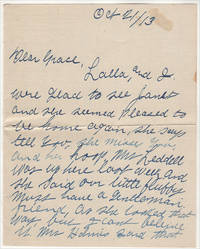 Oct 21/13
Dear Grace, Lalla, and I
were glad to see Janet
and she seemed pleased to
be home again, she says
tell Gov, she misses you,
and her Mrs Liddell
was up here last week and
she said our little fluffy
must have a Gentleman
friend, as she looked that
way but I can't believe
it. Mrs Harris said that